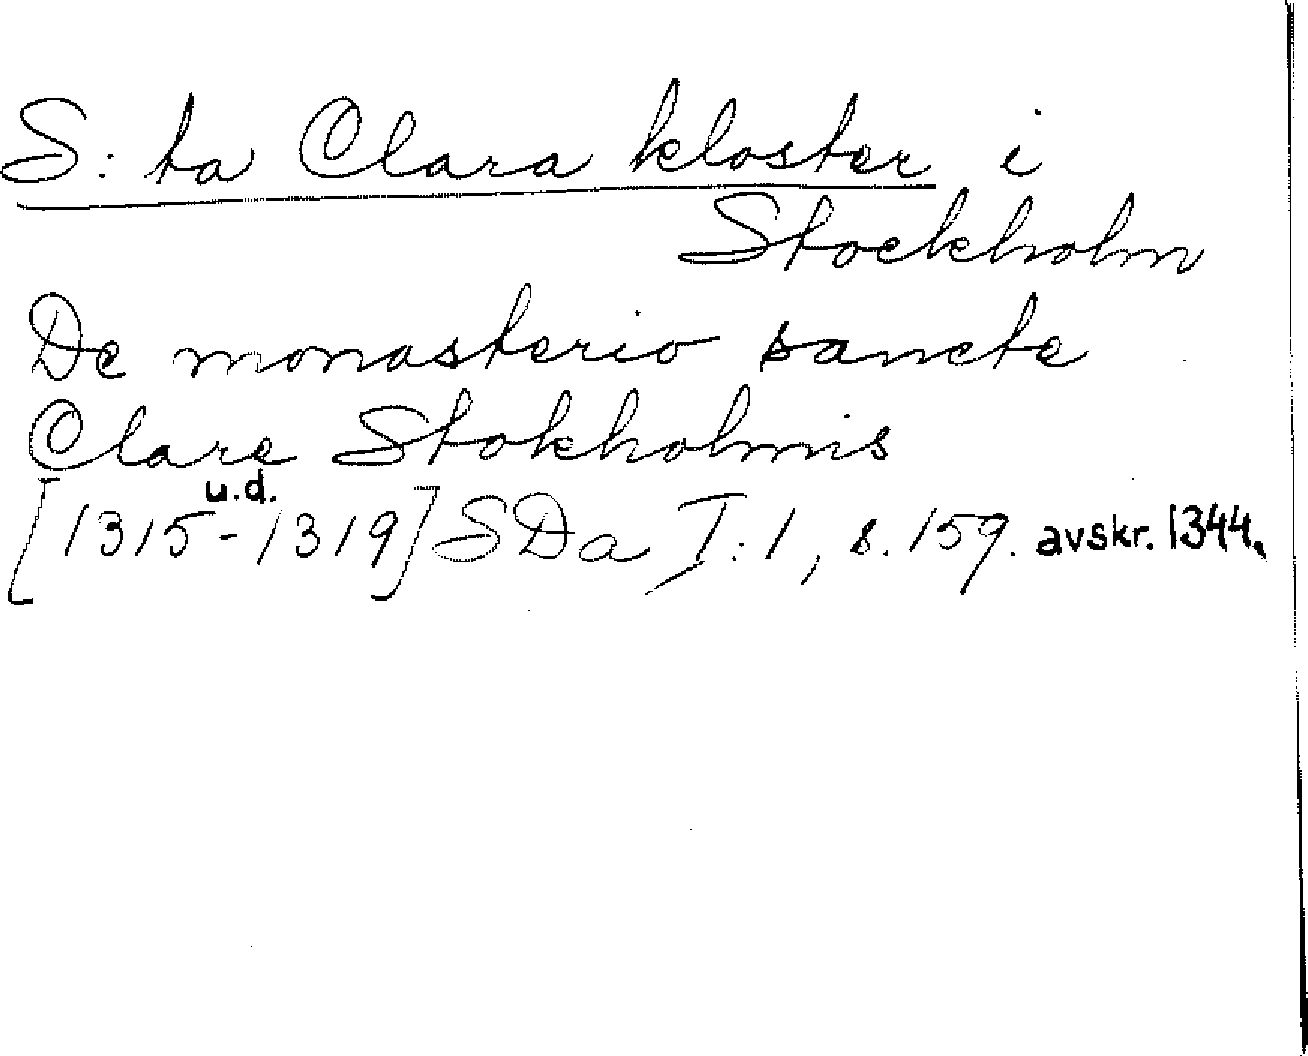 S:ta Clara kloster i
Stockholm
De monasterio sancte
Clare Stokholmis
u.d.
[1315-1319] SDa I:1, s. 159. avskr. 1344.